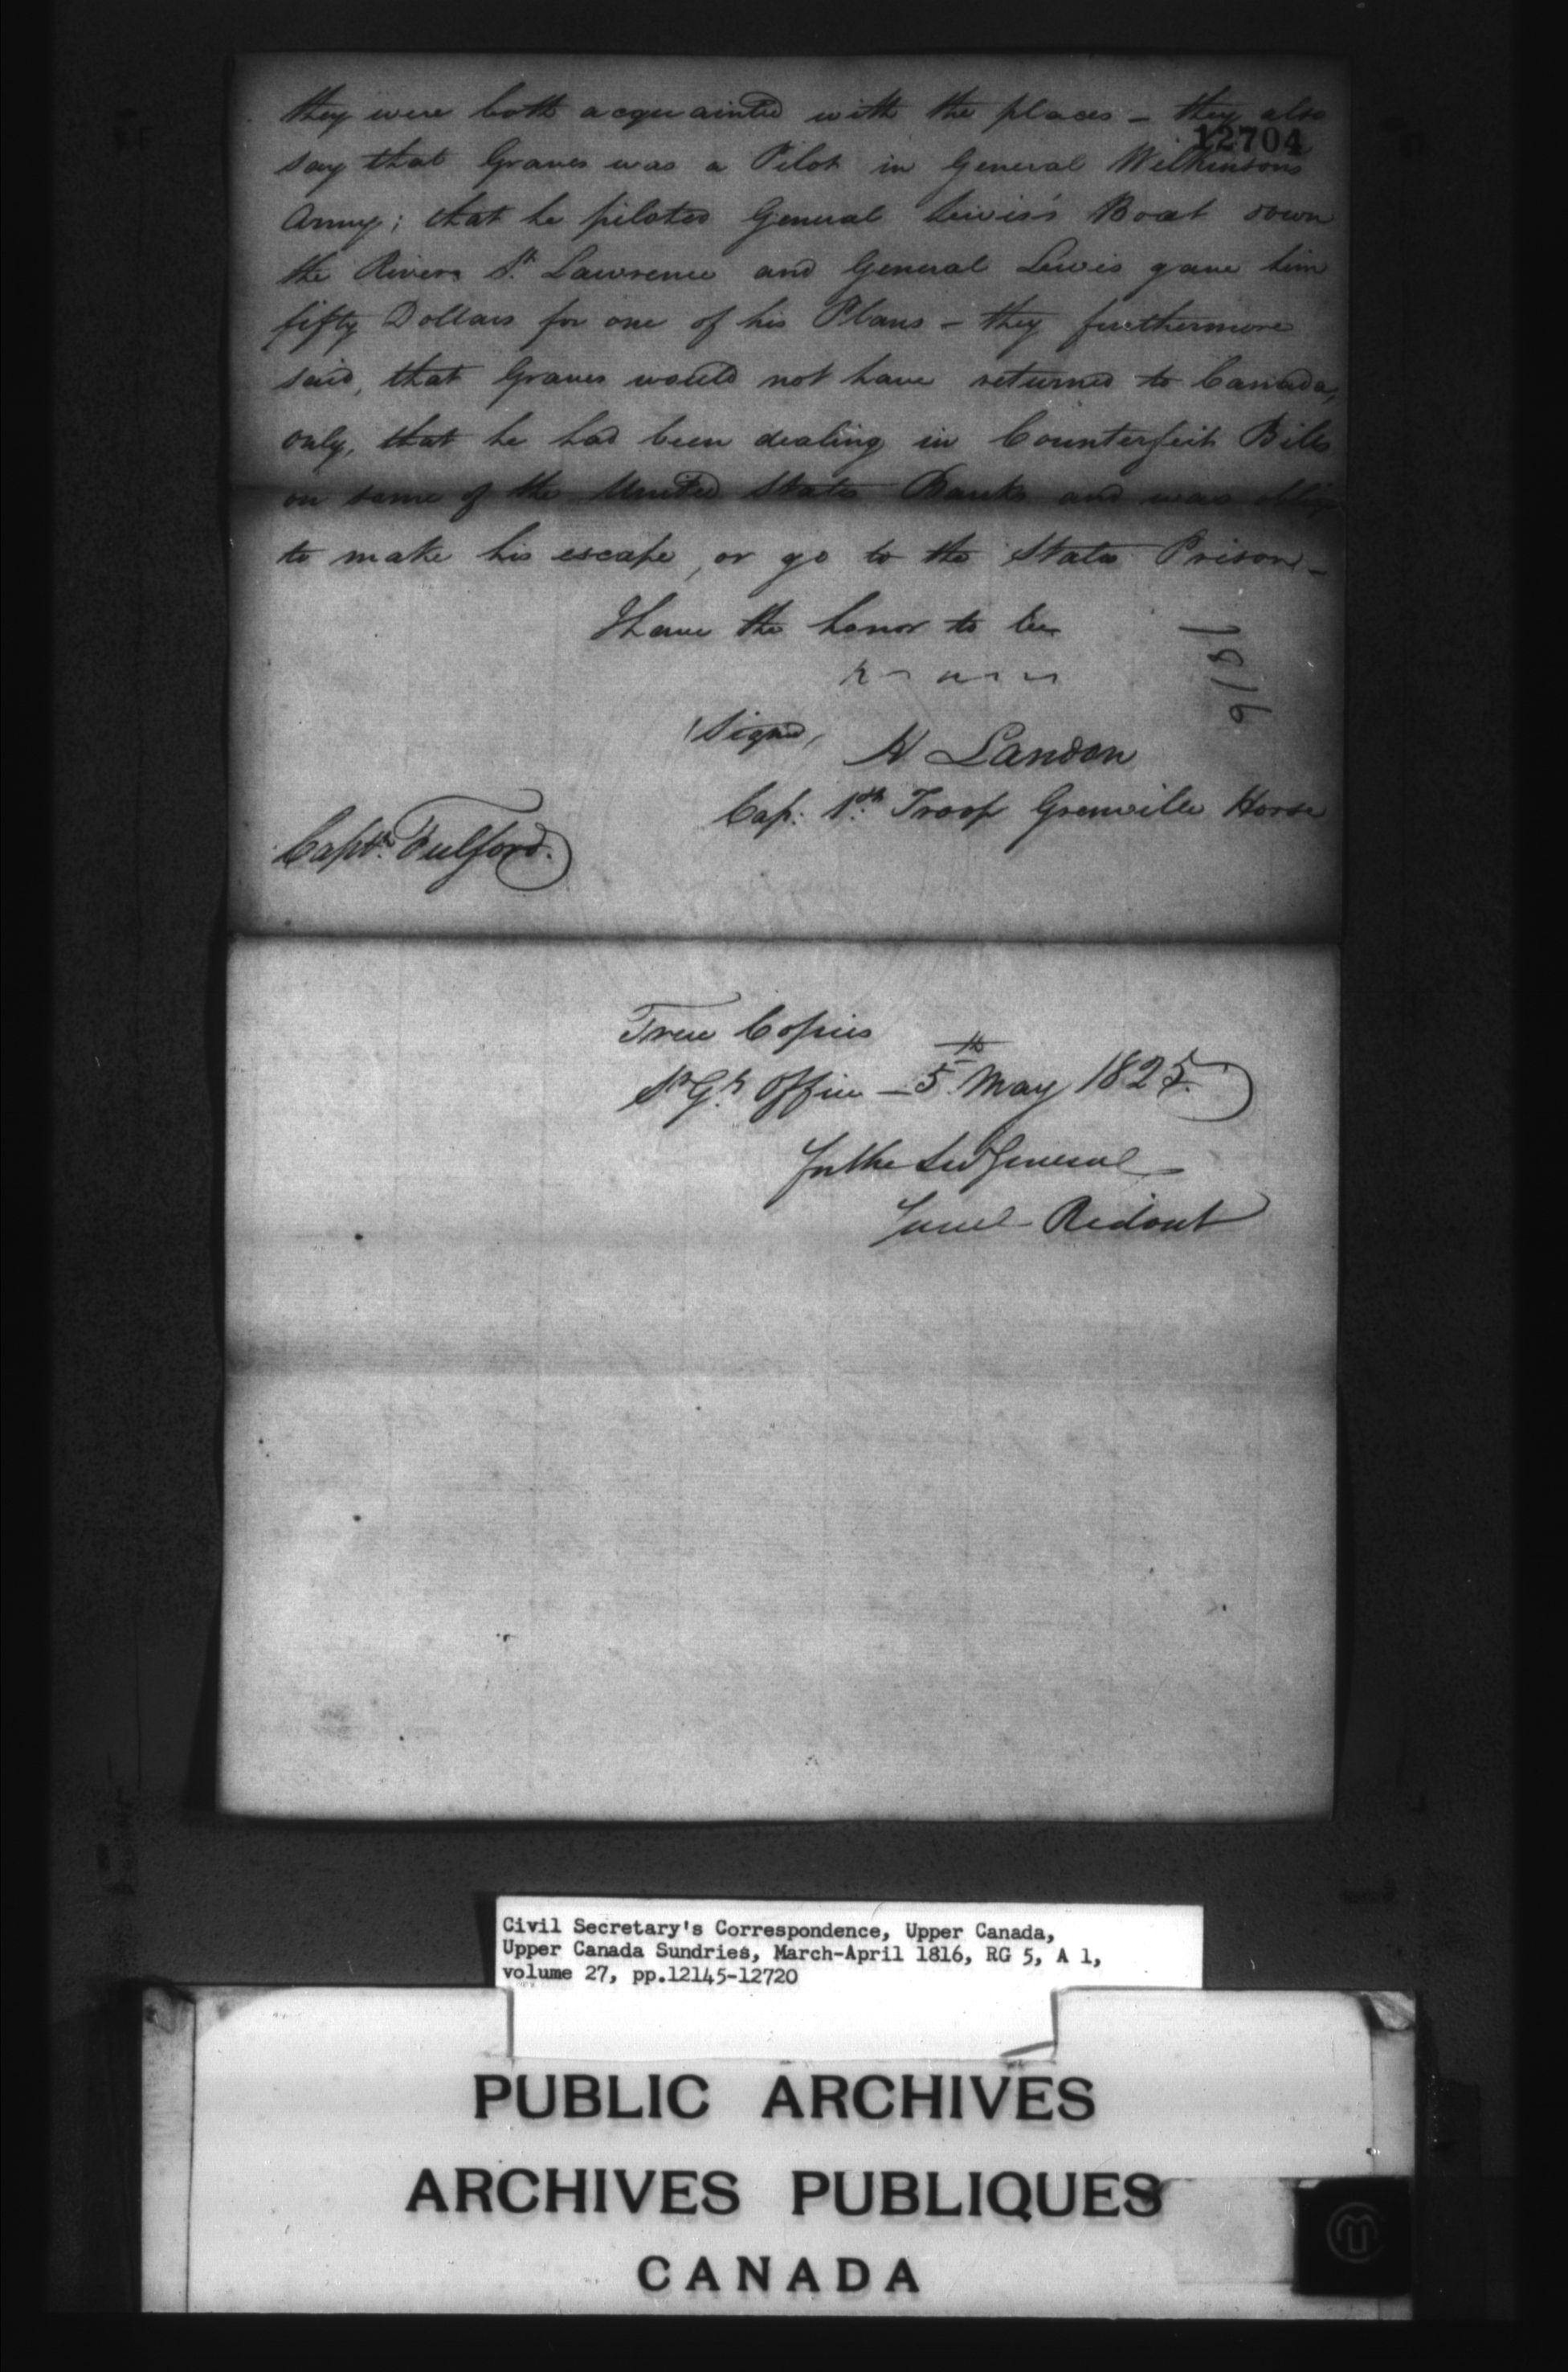 they were both acquainted with the places - they also
12704
say that Graves was a Pilot in General Wilkinsons
Army; that he piloted General Lewis's Boat down
the River St. Lawrence and General Lewis gave him
fifty Dollars for one of his Plans - they furthermore
said, that Graves would not have returned to Canada,
only, that he had been dealing in Counterfeit Bills
on some of the United States Banks and was oblig
to make his escape, or go to the States Prison -
I have the honor to be
1816
(Signed, H Landon
Cap: 1st Troop Grenville Horse
Captn. Fulford.
True Copies
Sr. Gl. Office - 5th May 1825.
For the Sur General
Saml Ridout
Civil Secretary's Correspondence, Upper Canada,
Upper Canada Sundries, March-April 1816, RG 5, A 1,
volume 27, pp.12145-12720
PUBLIC ARCHIVES
ARCHIVES PUBLIQUES
CANADA